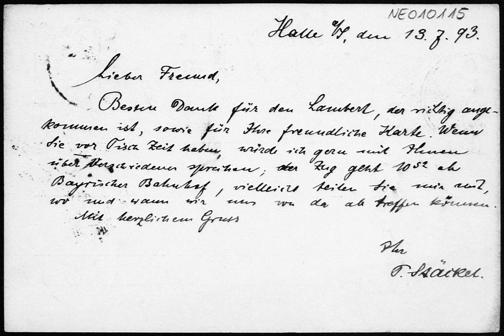 NE010115
Halle a/S, den 13. 7. 93.
Lieber Freund,
Besten Dank für den Lambert, der richtig ange-
kommen ist, sowie für Ihre freundliche Karte. Wenn
Sie vor Tisch Zeit haben, würde ich gern mit Ihnen
über Verschiedenes sprechen; der Zug geht 10⁵² ab
Bayrischer Bahnhof, vielleicht teilen Sie mir mit,
wo und wann wir uns von da ab treffen können.
Mit herzlichem Gruss
Ihr
P. Stäckel.